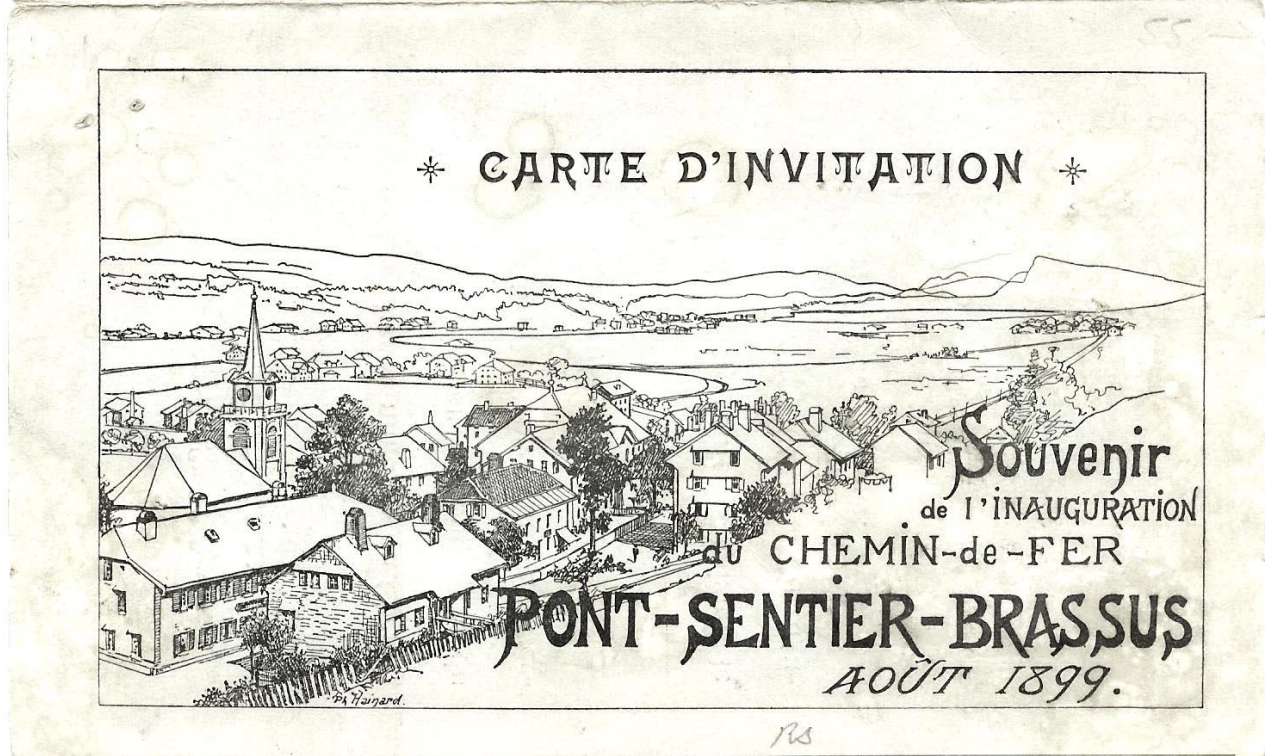 55-
CARTE D'INVITATION
Souvenir
de l'INAUGURATION
du CHEMIN-de-FER
PONT-SENTIER-BRASSUS
AOÛT 1899.
Ph Hainard.
RS